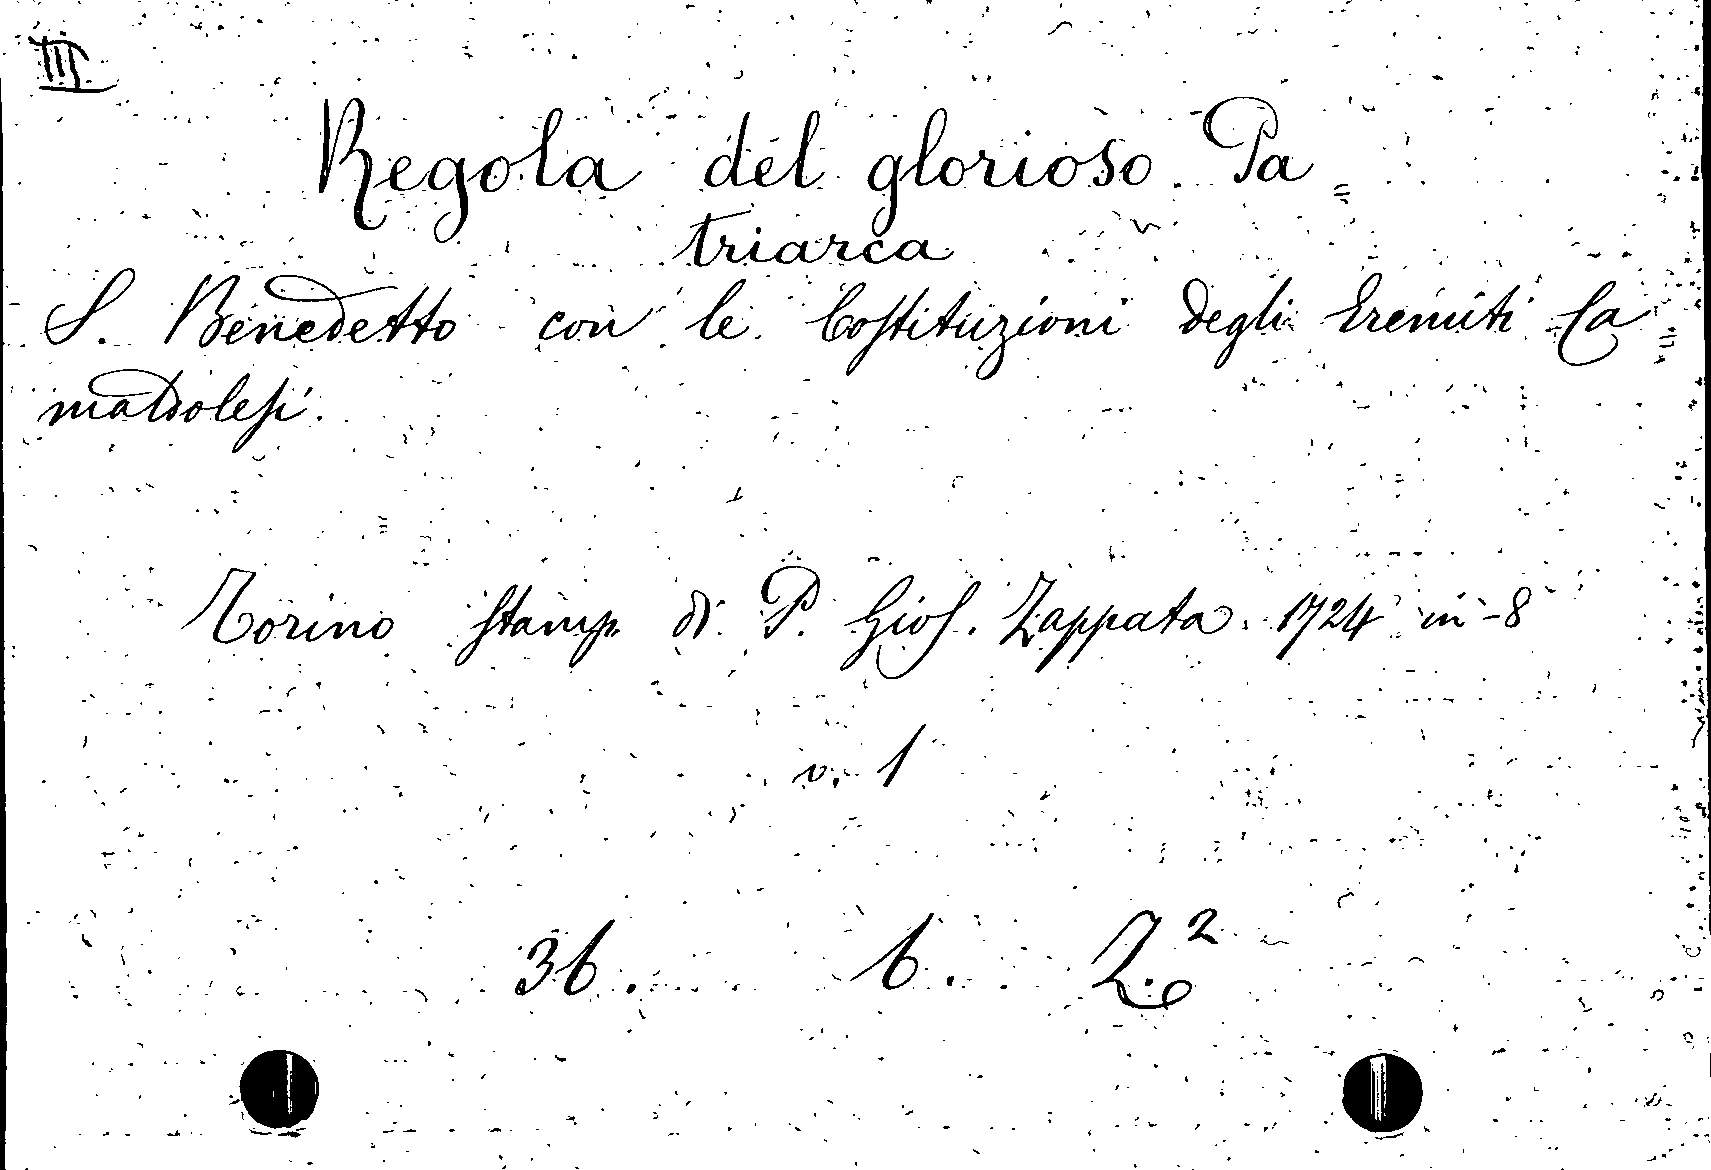 III
Regola del glorioso Pa=
triarca
S. Benedetto con le Costituzioni degli Eremiti Ca=
maldolesi.
Torino stamp. di P. Gios. Zappata. 1724 in-8
v. 1
36. 6. Z.²